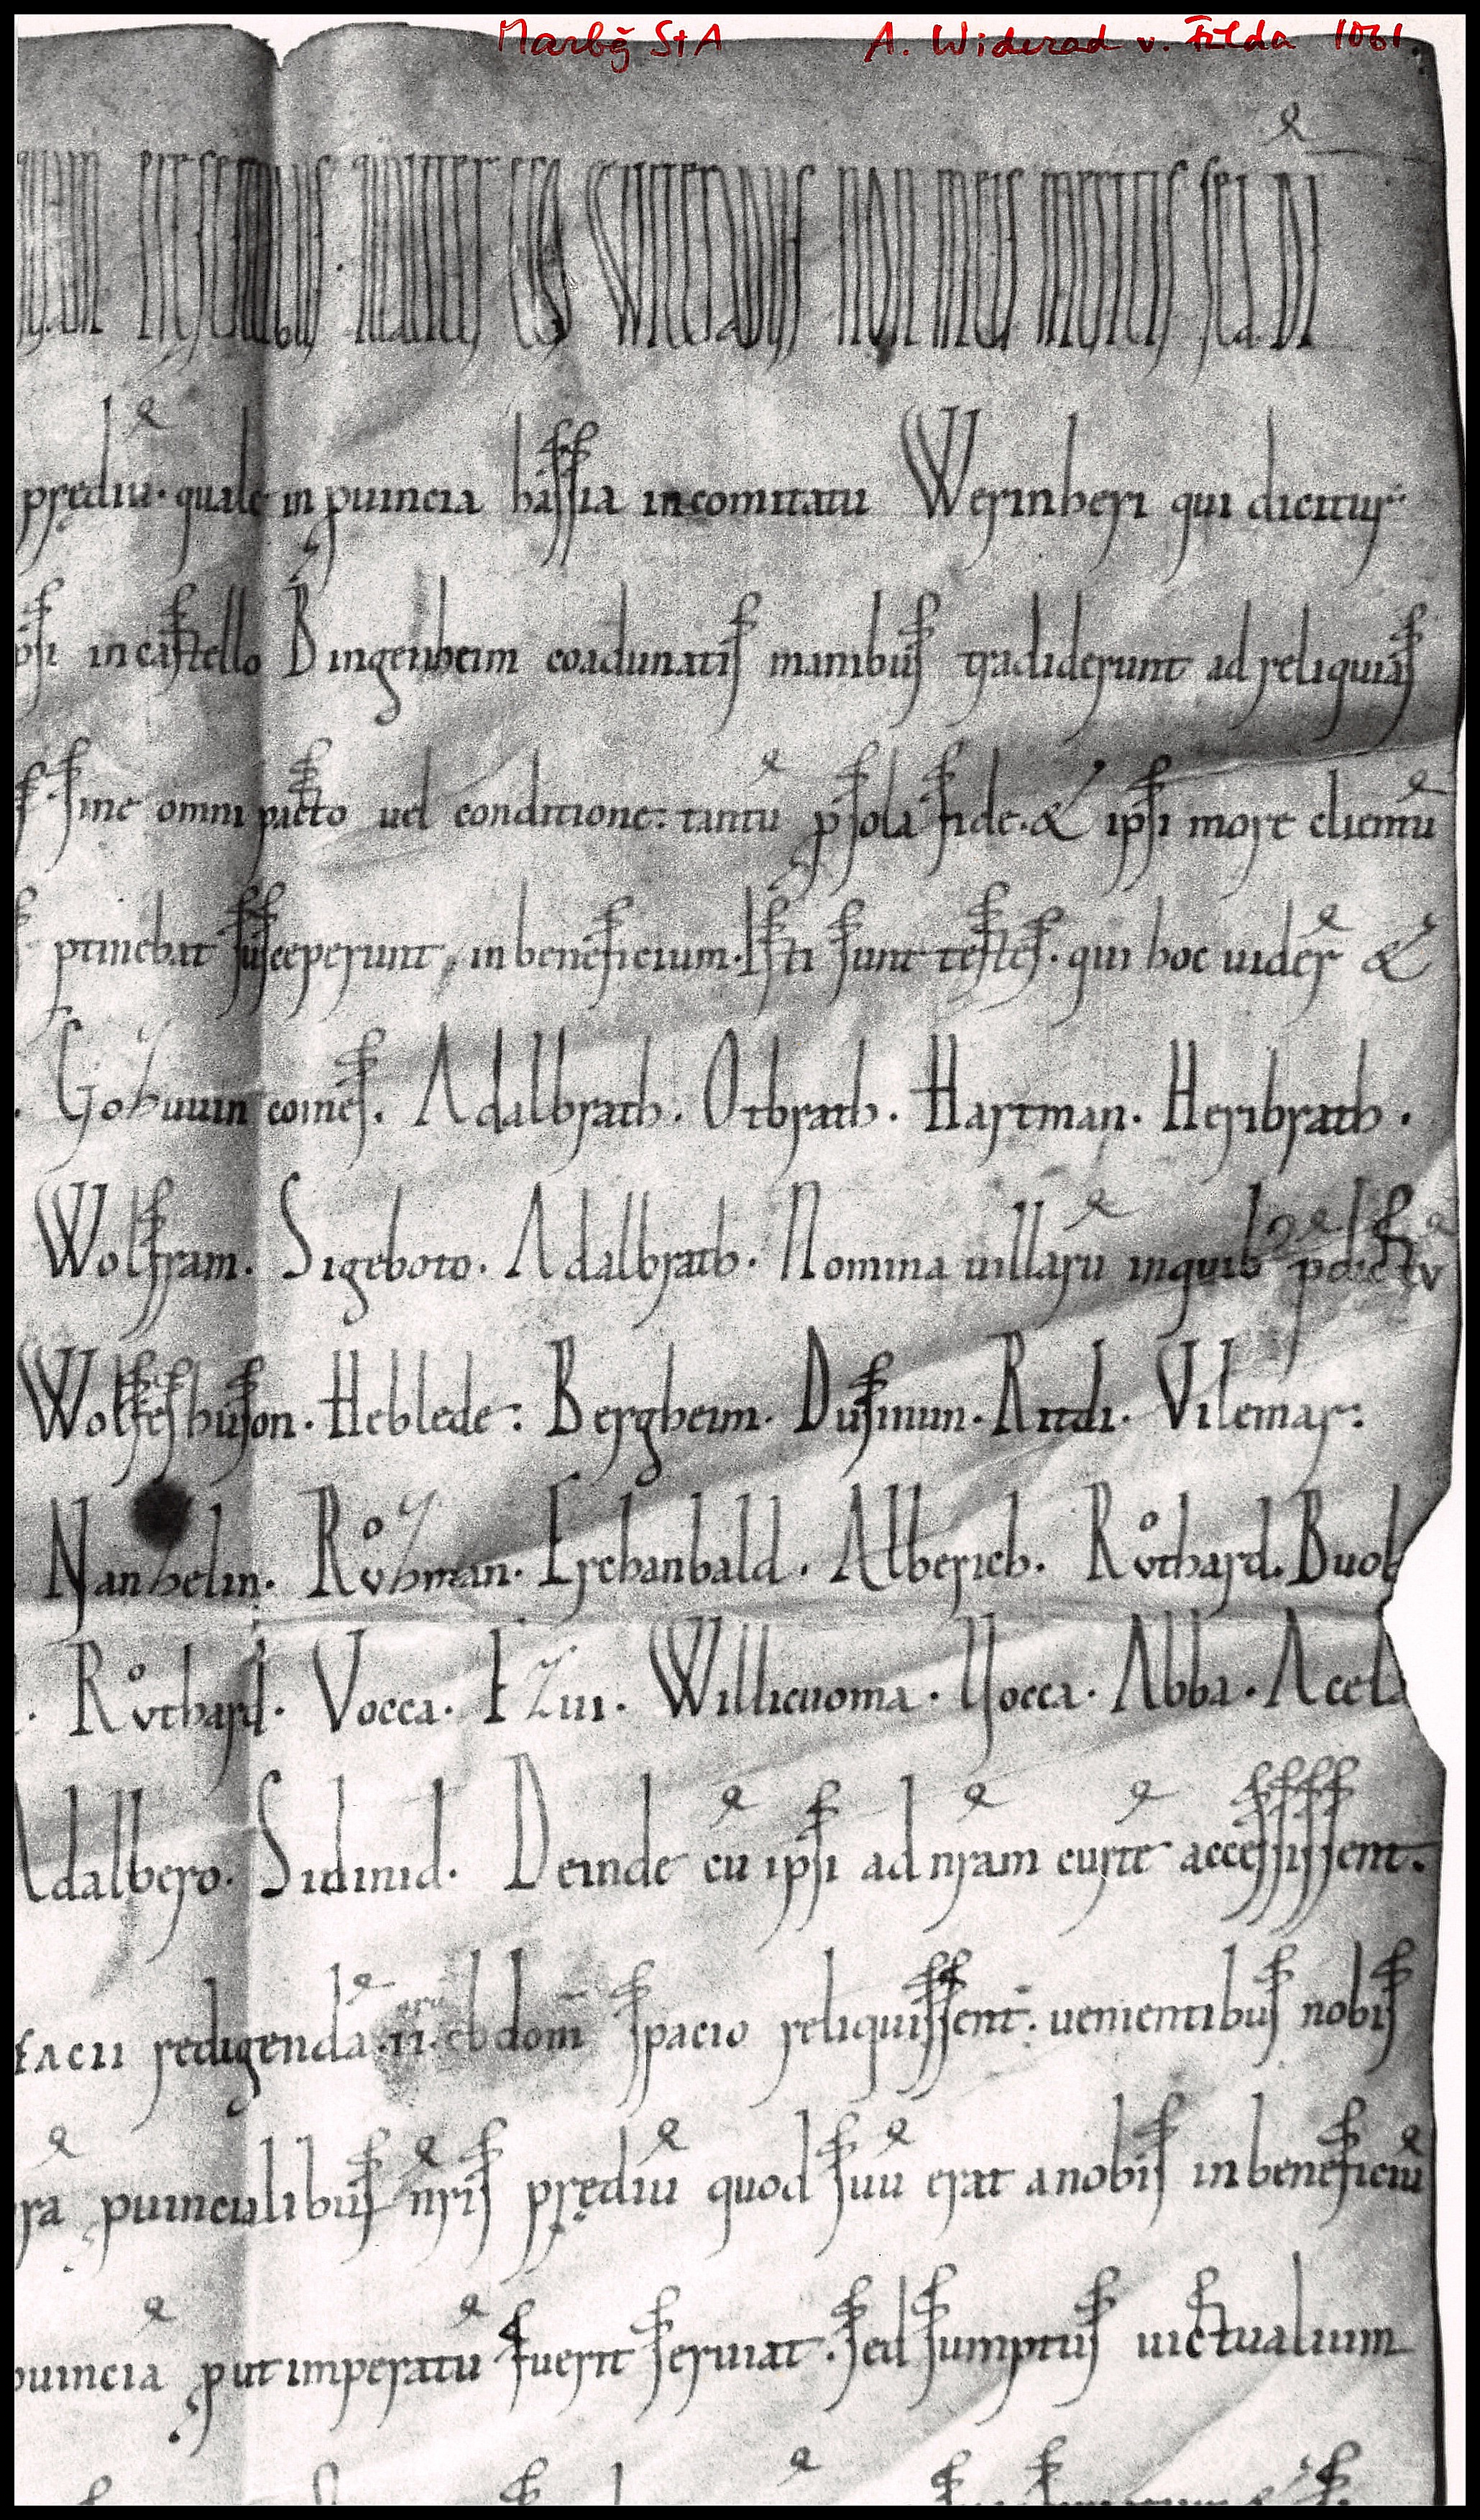 Marbg̃ StA A. Widerad v. Fulda 1061.
presentibus qualiter ego Wideradus non meis meritis sed dī
prędiū. quale in puincia hassia in comitatu Werinheri qui dicitur
in castello Bingenheim coadunatis manibus tradiderunt ad reliquias
sine omni pacto uel conditione: tantū p sola fide. & ipsi more clientū
ptinebat susceperunt in beneficium. Isti sunt testes. qui hoc uider̄ &
. Gozuuin comes. Adalbrath. Otbrath. Hartman. Heribrath.
Wolfram. Sigeboto. Adalbrath. Nomina uillarū in quib
Wolfeshuson. Heblede: Bergheim. Dusinun. Ritdi. Vilemar:
Nanzelin. Rͦuzman. Erchanbald. Alberich. Rͦuthard. Buob
. Rͦuthard. Vocca. Ezui. Willicuoma. Yocca. Abba. Acela
Adalbero. Sidinid. Deinde cū ipsi ad nr̄am curtē accessissent.
redigendā. ii. ebdom̄ arū spacio reliquissent: uenientibus nobis
puincialibus nr̄is prędiū quod suū erat a nobis in beneficiū
puincia put imperatū fuerit seruiat. sed sumptus uictualium